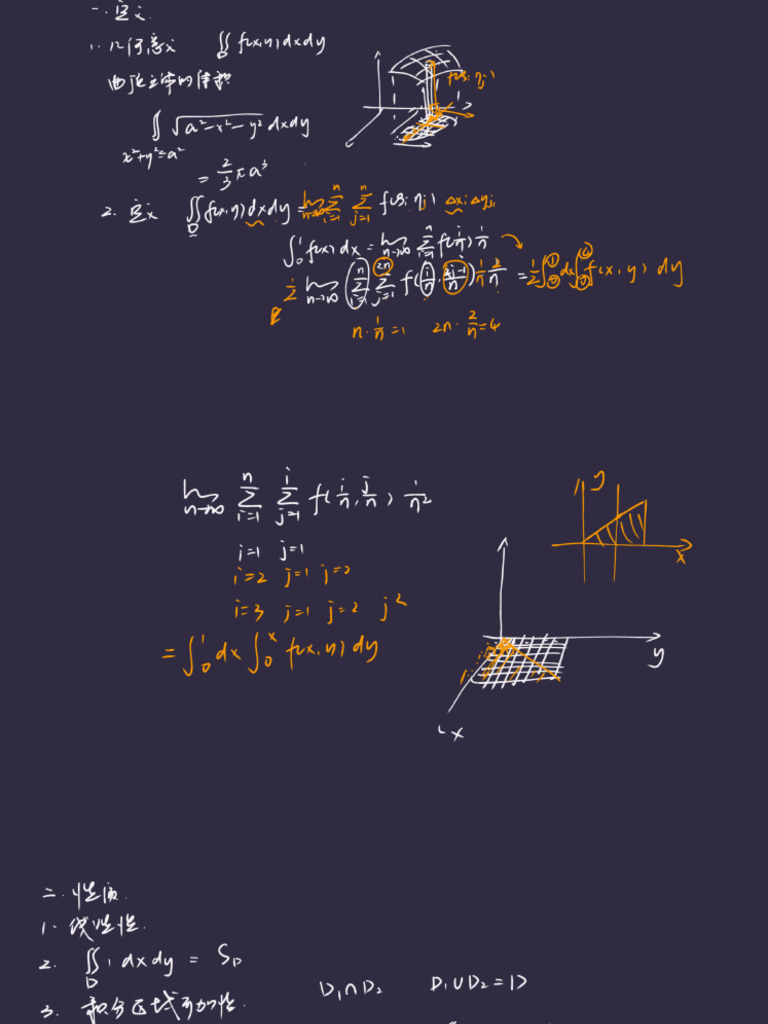 一.定义
1.几何意义 ∬_D f(x,y)dxdy
曲顶立体的体积
f(ξi,ηj)
∬_{x²+y²=a²} √(a²-x²-y²) dxdy
= 2/3 πa³
2. 定义 ∬_D f(x,y)dxdy = lim_{n→∞} Σ_{i=1}^{n} Σ_{j=1}^{n} f(ξi,ηj) Δxi Δηj
∫_0^1 f(x)dx = lim_{n→∞} Σ_{i=1}^{n} f(i/n) 1/n
1/2 lim_{n→∞} Σ_{i=1}^{n} Σ_{j=1}^{2n} f(i/n, (2j-1)/n) 1/n 2/n = 1/2 ∫_0^1 dx ∫_0^4 f(x,y) dy
n·1/n=1 2n·2/n=4
lim_{n→∞} Σ_{i=1}^{n} Σ_{j=1}^{i} f(i/n, j/n) 1/n²
i=1 j=1
i=2 j=1 j=2
i=3 j=1 j=2
= ∫_0^1 dx ∫_0^x f(x,y) dy
1 y
x
y
1
x
二.性质
1.线性性.
2. ∬_D 1 dxdy = S_D
3. 积分区域可加性. D₁∩D₂ D₁∪D₂=D